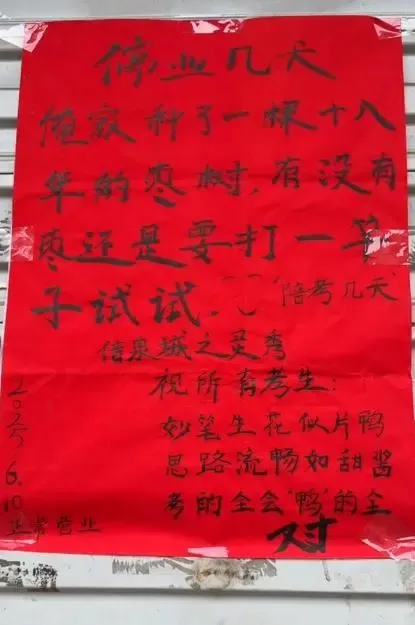 停业几天
俺家种了一棵十八
年的枣树，有没有
枣还是要打一竿
子试试。
陪考几天
借泉城之灵秀
视所有考生：
妙笔生花似片鸭
思路流畅如甜酱
考的全会"鸭"的全
对
2025
6.10
正常营业